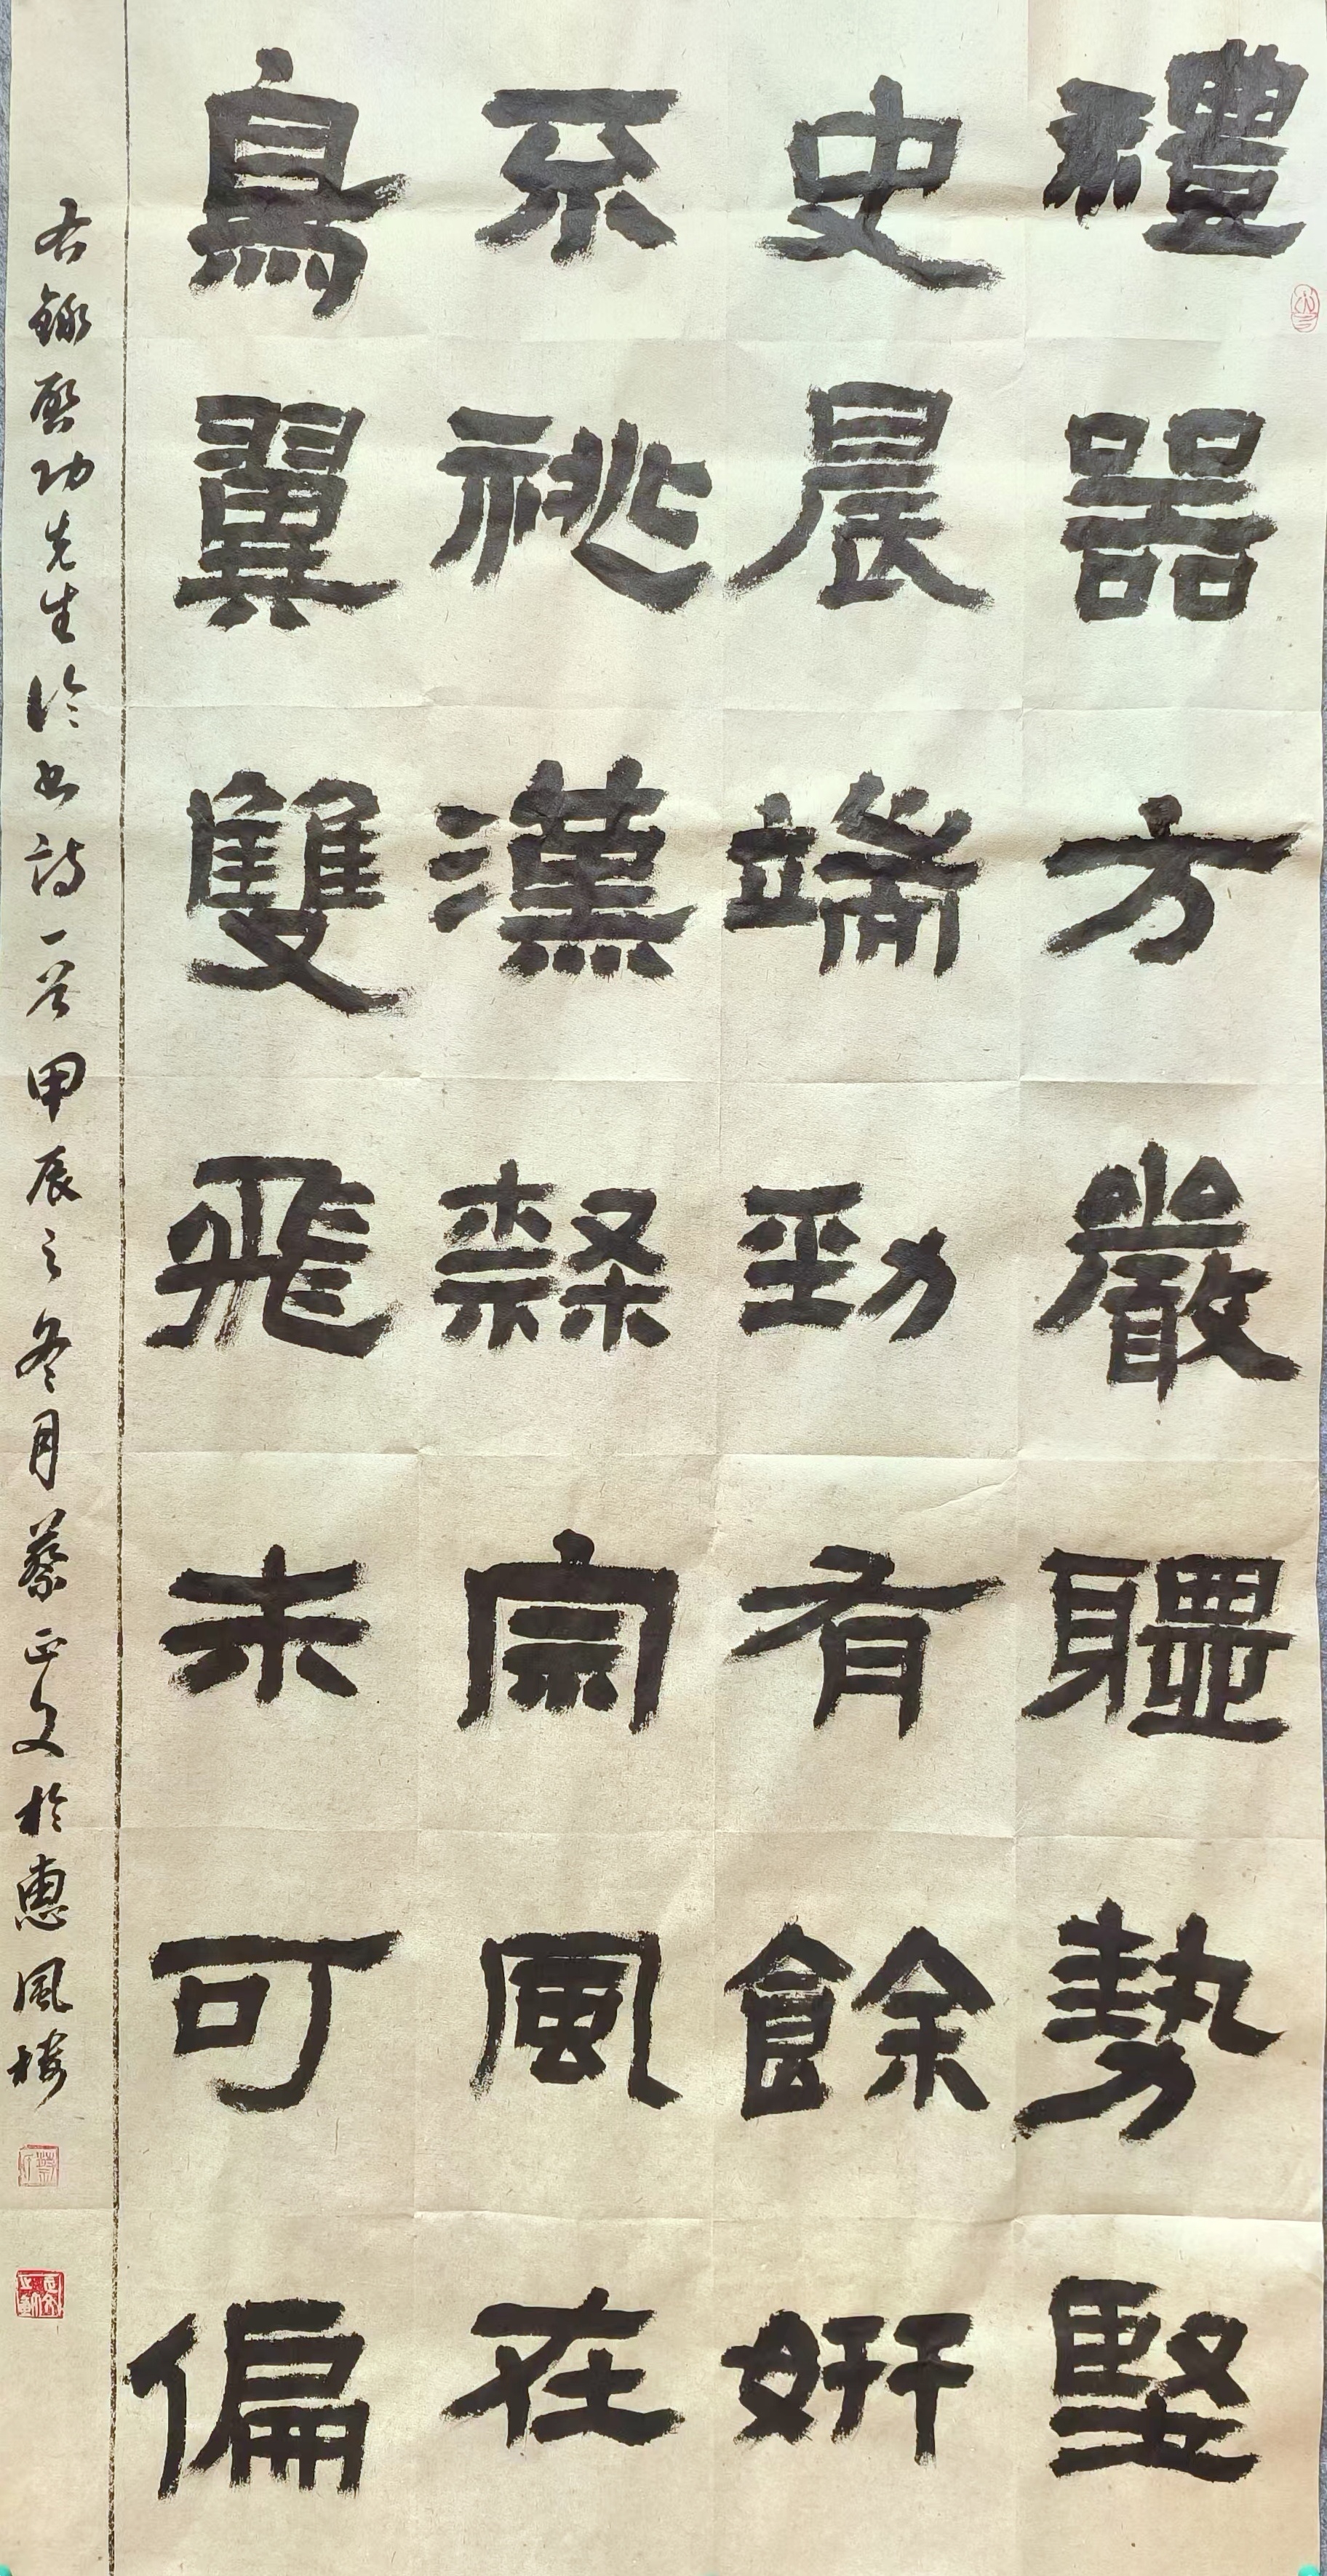 禮器方嚴軆勢堅
史晨端勁有餘妍
不祧漢隸宗風在
鳥翼雙飛未可偏
右錄啓功先生論書詩一首甲辰之冬月蔡正文於惠風樓